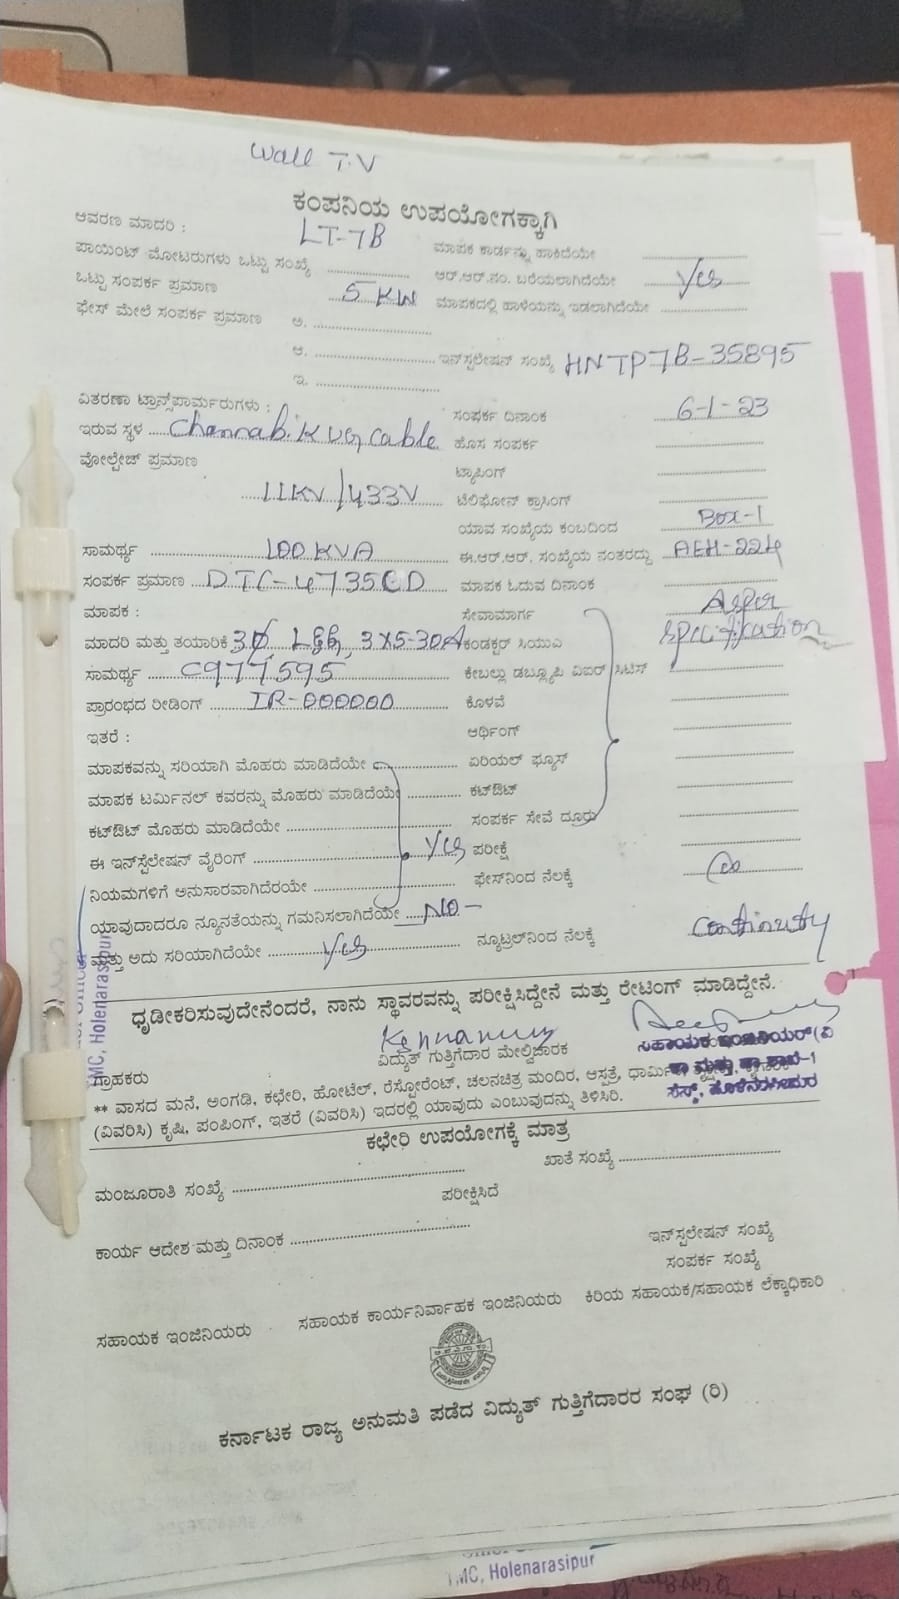 Wall T.V
ಕಂಪನಿಯ ಉಪಯೋಗಕ್ಕಾಗಿ
ಆವರಣ ಮಾದರಿ : LT-7B ಮಾಪಕ ಕಾರ್ಡನ್ನು ಹಾಕಿದೆಯೇ
ಪಾಯಿಂಟ್ ಮೋಟರುಗಳು ಒಟ್ಟು ಸಂಖ್ಯೆ ಆರ್.ಆರ್.ನಂ. ಬರೆಯಲಾಗಿದೆಯೇ Yes
ಒಟ್ಟು ಸಂಪರ್ಕ ಪ್ರಮಾಣ 5 KW ಮಾಪಕದಲ್ಲಿ ಹಾಳೆಯನ್ನು ಇಡಲಾಗಿದೆಯೇ
ಫೇಸ್ ಮೇಲೆ ಸಂಪರ್ಕ ಪ್ರಮಾಣ ಅ.
ಆ. ಇನ್‌ಸ್ಟಲೇಷನ್ ಸಂಖ್ಯೆ HNTP7B-35895
ಇ.
ವಿತರಣಾ ಟ್ರಾನ್ಸ್‌ಪಾರ್ಮರುಗಳು : ಸಂಪರ್ಕ ದಿನಾಂಕ 6-1-23
ಇರುವ ಸ್ಥಳ cable ಹೊಸ ಸಂಪರ್ಕ
ವೋಲ್ಟೇಜ್ ಪ್ರಮಾಣ ಟ್ಯಾಪಿಂಗ್
11KV/433V ಟೆಲಿಫೋನ್ ಕ್ರಾಸಿಂಗ್
ಯಾವ ಸಂಖ್ಯೆಯ ಕಂಬದಿಂದ Box-1
ಸಾಮರ್ಥ್ಯ 100 KVA ಈ.ಆರ್.ಆರ್. ಸಂಖ್ಯೆಯ ನಂತರದ್ದು AEH-224
ಸಂಪರ್ಕ ಪ್ರಮಾಣ DTC-4735 ಮಾಪಕ ಓದುವ ದಿನಾಂಕ
ಮಾಪಕ : ಸೇವಾಮಾರ್ಗ As per
ಮಾದರಿ ಮತ್ತು ತಯಾರಿಕೆ 3Ø L&G, 3X5-30A ಕಂಡಕ್ಟರ್ ಸಿಯುಎ specification
ಸಾಮರ್ಥ್ಯ C977595 ಕೇಬಲ್ಲು ಡಬ್ಲ್ಯೂಪಿ ವಿಐಆರ್ ಸಿಟಿಸ್
ಪ್ರಾರಂಭದ ರೀಡಿಂಗ್ IR-000000 ಕೊಳವೆ
ಇತರೆ : ಆರ್ಥಿಂಗ್
ಮಾಪಕವನ್ನು ಸರಿಯಾಗಿ ಮೊಹರು ಮಾಡಿದೆಯೇ ಏರಿಯಲ್ ಫ್ಯೂಸ್
ಮಾಪಕ ಟರ್ಮಿನಲ್ ಕವರನ್ನು ಮೊಹರು ಮಾಡಿದೆಯೆ ಕಟ್‌ಔಟ್
ಕಟ್‌ಔಟ್ ಮೊಹರು ಮಾಡಿದೆಯೇ ಸಂಪರ್ಕ ಸೇವೆ ದೂರು
ಈ ಇನ್‌ಸ್ಟೆಲೇಷನ್ ವೈರಿಂಗ್ Yes ಪರೀಕ್ಷೆ
ನಿಯಮಗಳಿಗೆ ಅನುಸಾರವಾಗಿದೆರಯೇ ಫೇಸ್‌ನಿಂದ ನೆಲಕ್ಕೆ
ಯಾವುದಾದರೂ ನ್ಯೂನತೆಯನ್ನು ಗಮನಿಸಲಾಗಿದೆಯೇ NO-
ಮತ್ತು ಅದು ಸರಿಯಾಗಿದೆಯೇ Yes ನ್ಯೂಟ್ರಲ್‌ನಿಂದ ನೆಲಕ್ಕೆ continuty
ಧೃಡೀಕರಿಸುವುದೇನೆಂದರೆ, ನಾನು ಸ್ಥಾವರವನ್ನು ಪರೀಕ್ಷಿಸಿದ್ದೇನೆ ಮತ್ತು ರೇಟಿಂಗ್ ಮಾಡಿದ್ದೇನೆ.
MC, Holenarasipur
ಗ್ರಾಹಕರು ವಿದ್ಯುತ್ ಗುತ್ತಿಗೆದಾರ ಮೇಲ್ವಿಚಾರಕ ಸಹಾಯಕ ಇಂಜಿನಿಯರ್(ವಿ
** ವಾಸದ ಮನೆ, ಅಂಗಡಿ, ಕಛೇರಿ, ಹೋಟೆಲ್, ರೆಸ್ಟೋರೆಂಟ್, ಚಲನಚಿತ್ರ ಮಂದಿರ, ಆಸ್ಪತ್ರೆ,
(ವಿವರಿಸಿ) ಕೃಷಿ, ಪಂಪಿಂಗ್, ಇತರೆ (ವಿವರಿಸಿ) ಇದರಲ್ಲಿ ಯಾವುದು ಎಂಬುವುದನ್ನು ತಿಳಿಸಿರಿ.
ಕಛೇರಿ ಉಪಯೋಗಕ್ಕೆ ಮಾತ್ರ
ಮಂಜೂರಾತಿ ಸಂಖ್ಯೆ ಖಾತೆ ಸಂಖ್ಯೆ
ಪರೀಕ್ಷಿಸಿದೆ
ಕಾರ್ಯ ಆದೇಶ ಮತ್ತು ದಿನಾಂಕ ಇನ್‌ಸ್ಟಲೇಷನ್ ಸಂಖ್ಯೆ
ಸಂಪರ್ಕ ಸಂಖ್ಯೆ
ಸಹಾಯಕ ಇಂಜಿನಿಯರು ಸಹಾಯಕ ಕಾರ್ಯನಿರ್ವಾಹಕ ಇಂಜಿನಿಯರು ಕಿರಿಯ ಸಹಾಯಕ/ಸಹಾಯಕ ಲೆಕ್ಕಾಧಿಕಾರಿ
ಕರ್ನಾಟಕ ರಾಜ್ಯ ಅನುಮತಿ ಪಡೆದ ವಿದ್ಯುತ್ ಗುತ್ತಿಗೆದಾರರ ಸಂಘ (ರಿ)
TMC, Holenarasipur